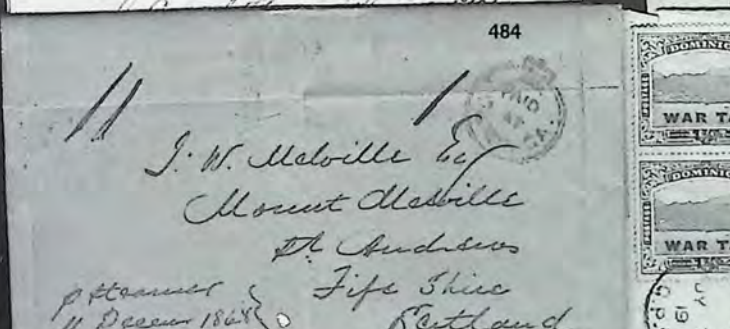 484
PAID
AT
J. W. Melville Esq
Mount Melville
St Andrews
Fife Shire
Scotland
p Steamer
11 Decemr 1868
DOMINIC
WAR TA
DOMINIC
WAR TA